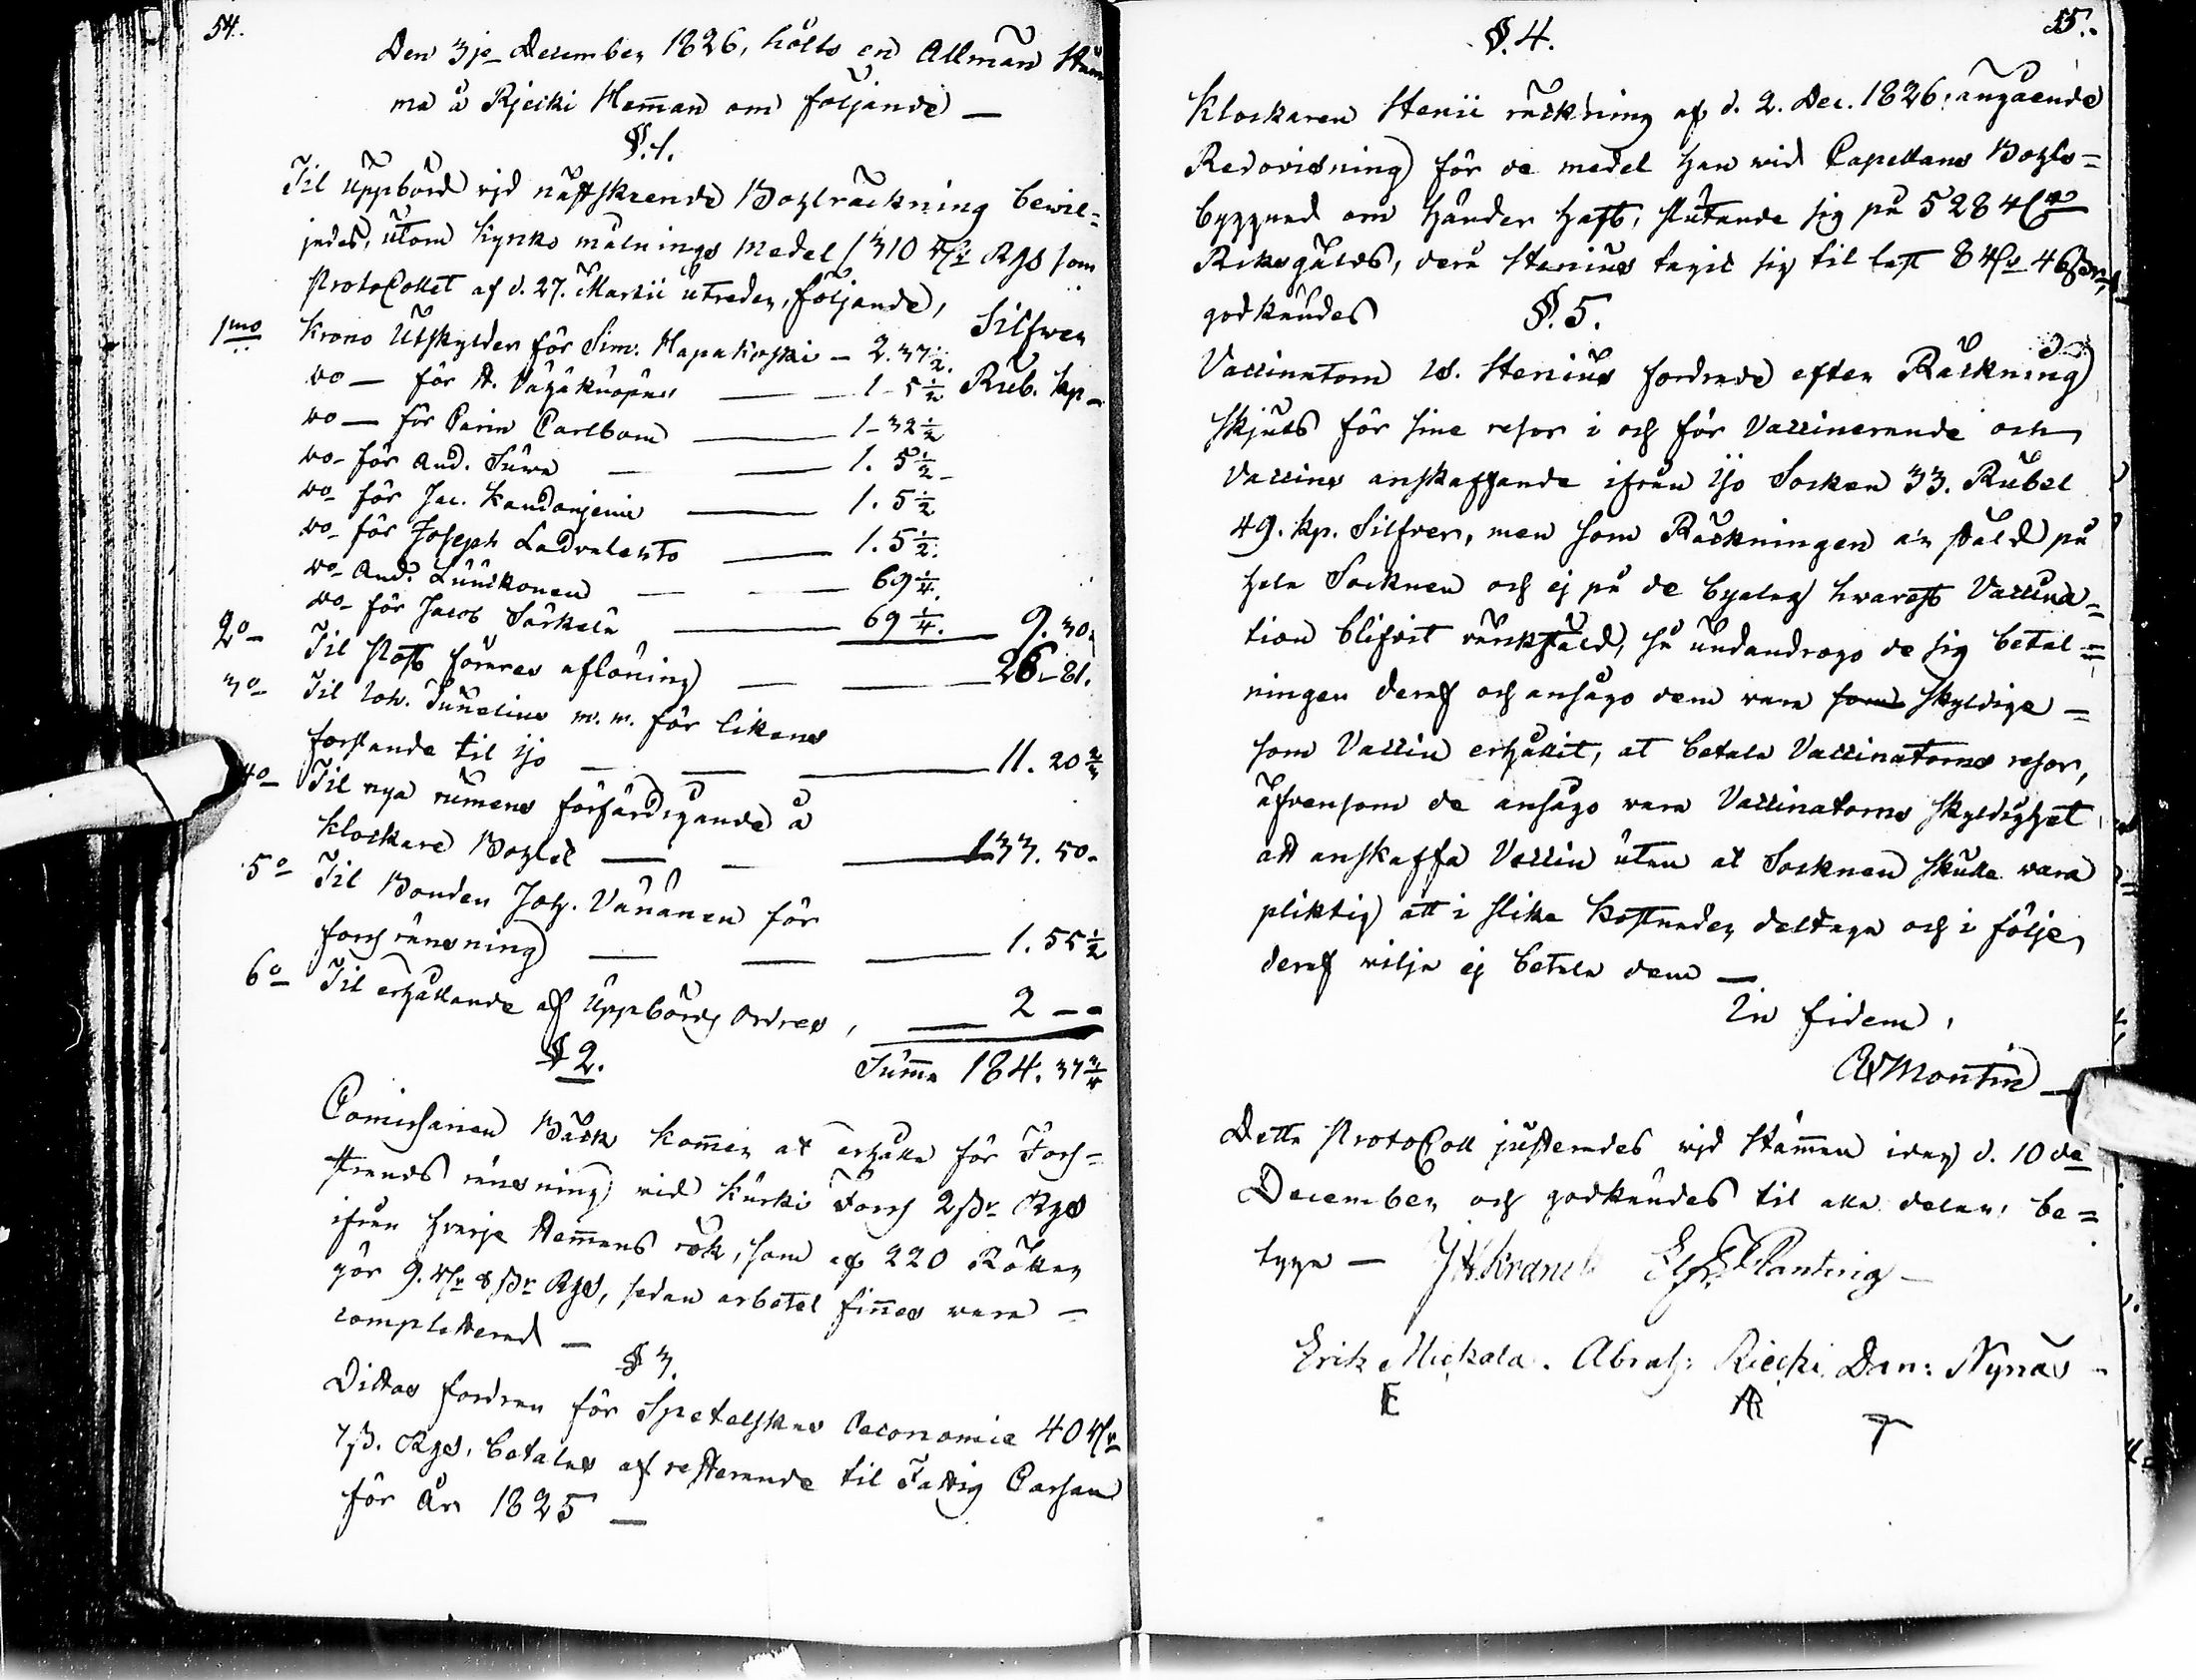 54.
Den 3je December 1826, hölts en Allmän Stäm
ma å Rjecki Heman om följande —
§. 1.
Til uppbörd vid nästskeende Bohlräckning bewil=
jades, utom Kyrko målnings medel (310 Rdr Rgs som
Protocollet af d. 27. Martii utreder, följande,
Silfwer
1mo Krono Utskylder för Sim. Hapakoski — 2. 37½.
Rub. kp —
do — för A. — 1 - 5½
do — för Carin Carlbom — 1 - 32½
do — för And. Surwa — 1. 5½ —
do för Jac. — 1. 5½
do för Joseph Ladvalehto — 1. 5½.
do And. Luukonen — 69¼.
do för Jacob Särkelä — 69¼. 9. 30.
2o — Til Post förares aflöning — 26 - 81.
3o Til Joh. Junelius m. m. för likens
forslande til Ijo — 11. 20 ¾
4o Til nya rumens förfärdigande å
Klockare Bohlet — 133. 50 —
5o Til Bonden Joh. Vänänen för
forsränsning — 1. 55½
6o Til erhållande af Uppbörds Ordres, — 2 — —
§ 2.
Summa 184. 37¾
Comissarien Bäck kommer at erhålla för Fors=
strands ränsning vid Kurki Fors 2 sk. Rgs
ifrån hvarje Hemmans rök, som af 220 Rökar
gör 9. Rdr 8 sk. Rgs, sedan arbetet finnes vara —
completterad —
§ 3.
Dittos fordran för Spetelskas Oeconomie 40 Rdr
7 sk. Rgs. betalas af resterande til Fattig Cassan
för År 1825 —
55.
§. 4.
Klockaren Stenii räckning af d. 2. Dec. 1826. angående
Redovisning för de medel han vid Capellans Bohls=
byggnad om händer haft, slutande sig på 528 Rdr
Riksgälds, dera Stenius tagit sig til last 8 Rdr 46 sk.
godkändes
§. 5.
Vaccinatorn Stenius fordrade efter Räckning
skjuts för sine resor i och för Vaccinerande och
Vaccins anskaffande ifrån Ijo Socken 33. Rubel
49. kp. Silfver, men som Räckningen är stäld på
hela Socknen och ej på de byalag hwarest Vaccina=
tion blifvit värkstäld, så undandrogo de sig betal=
ningen deraf och ansågo dem vara som skyldige —
som Vaccin erhållit, at betala Vaccinatorns resor,
äfvensom de ansågo vara Vaccinatorns skyldighet
att anskaffa Vaccin utan at Socknen skulle vara
pliktig att i slika kostnader deltaga och i följe
deraf vilja ej betala dem —
In fidem,
Montin
Detta Protocoll justerades vid Stämman idag d. 10de
December, och godkändes til alla delar, be=
tyga — J H Kranck Planting —
Erik Mickola. Abrah: Riecki. Dan: Nynäs —
E AR T